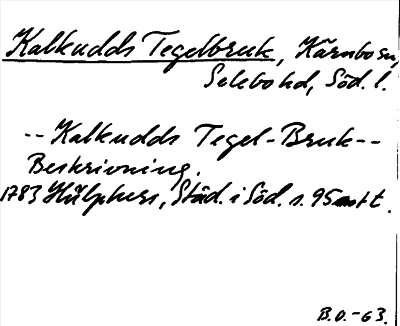 Kalkudds Tegelbruk, Kärnbo sn,
Selebo hd, Söd. l.
-- Kalkudds Tegel-Bruk--
Beskrivning.
1783 Hülphers, Städ. i Söd. s. 95 not t.
B.O.-63.